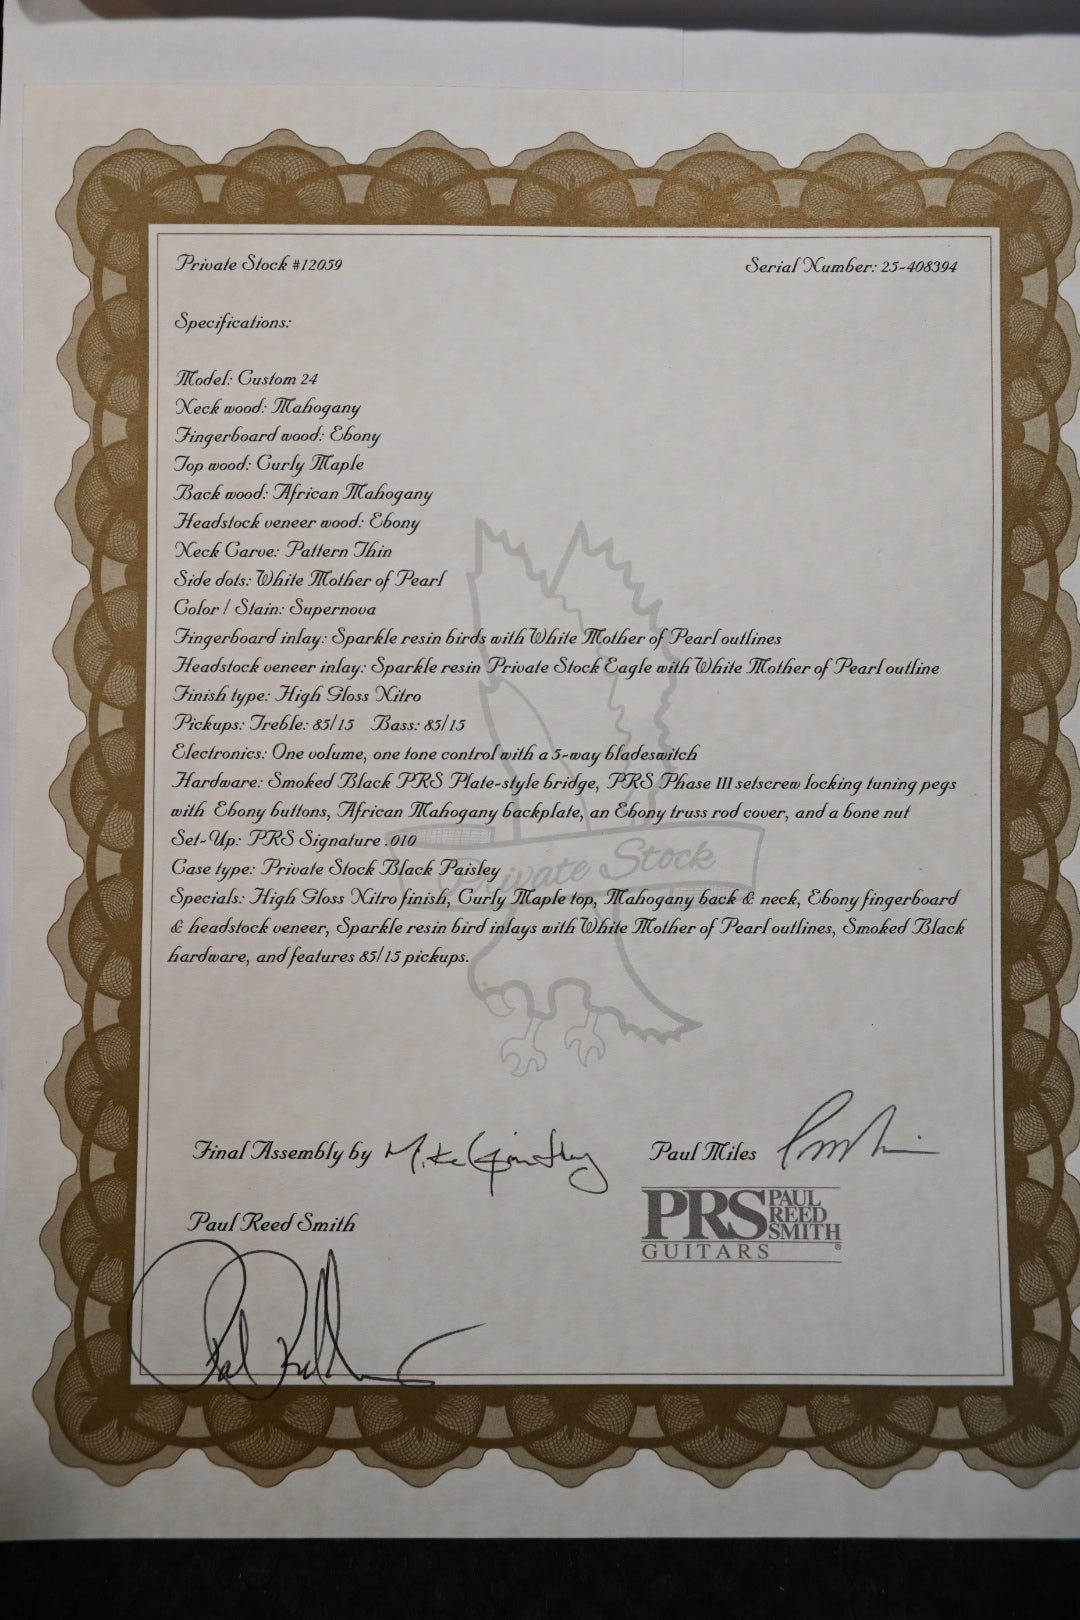 Private Stock #12059
Serial Number: 25-408394
Specifications:
Model: Custom 24
Neck wood: Mahogany
Fingerboard wood: Ebony
Top wood: Curly Maple
Back wood: African Mahogany
Headstock veneer wood: Ebony
Neck Carve: Pattern Thin
Side dots: White Mother of Pearl
Color / Stain: Supernova
Fingerboard inlay: Sparkle resin birds with White Mother of Pearl outlines
Headstock veneer inlay: Sparkle resin Private Stock Eagle with White Mother of Pearl outline
Finish type: High Gloss Nitro
Pickups: Treble: 85/15 Bass: 85/15
Electronics: One volume, one tone control with a 5-way bladeswitch
Hardware: Smoked Black PRS Plate-style bridge, PRS Phase III setscrew locking tuning pegs
with Ebony buttons, African Mahogany backplate, an Ebony truss rod cover, and a bone nut
Set-Up: PRS Signature .010
Case type: Private Stock Black Paisley
Private Stock
Specials: High Gloss Nitro finish, Curly Maple top, Mahogany back & neck, Ebony fingerboard
& headstock veneer, Sparkle resin bird inlays with White Mother of Pearl outlines, Smoked Black
hardware, and features 85/15 pickups.
Final Assembly by Mike
Paul Miles
Paul Reed Smith
PRS PAUL REED SMITH
GUITARS ®